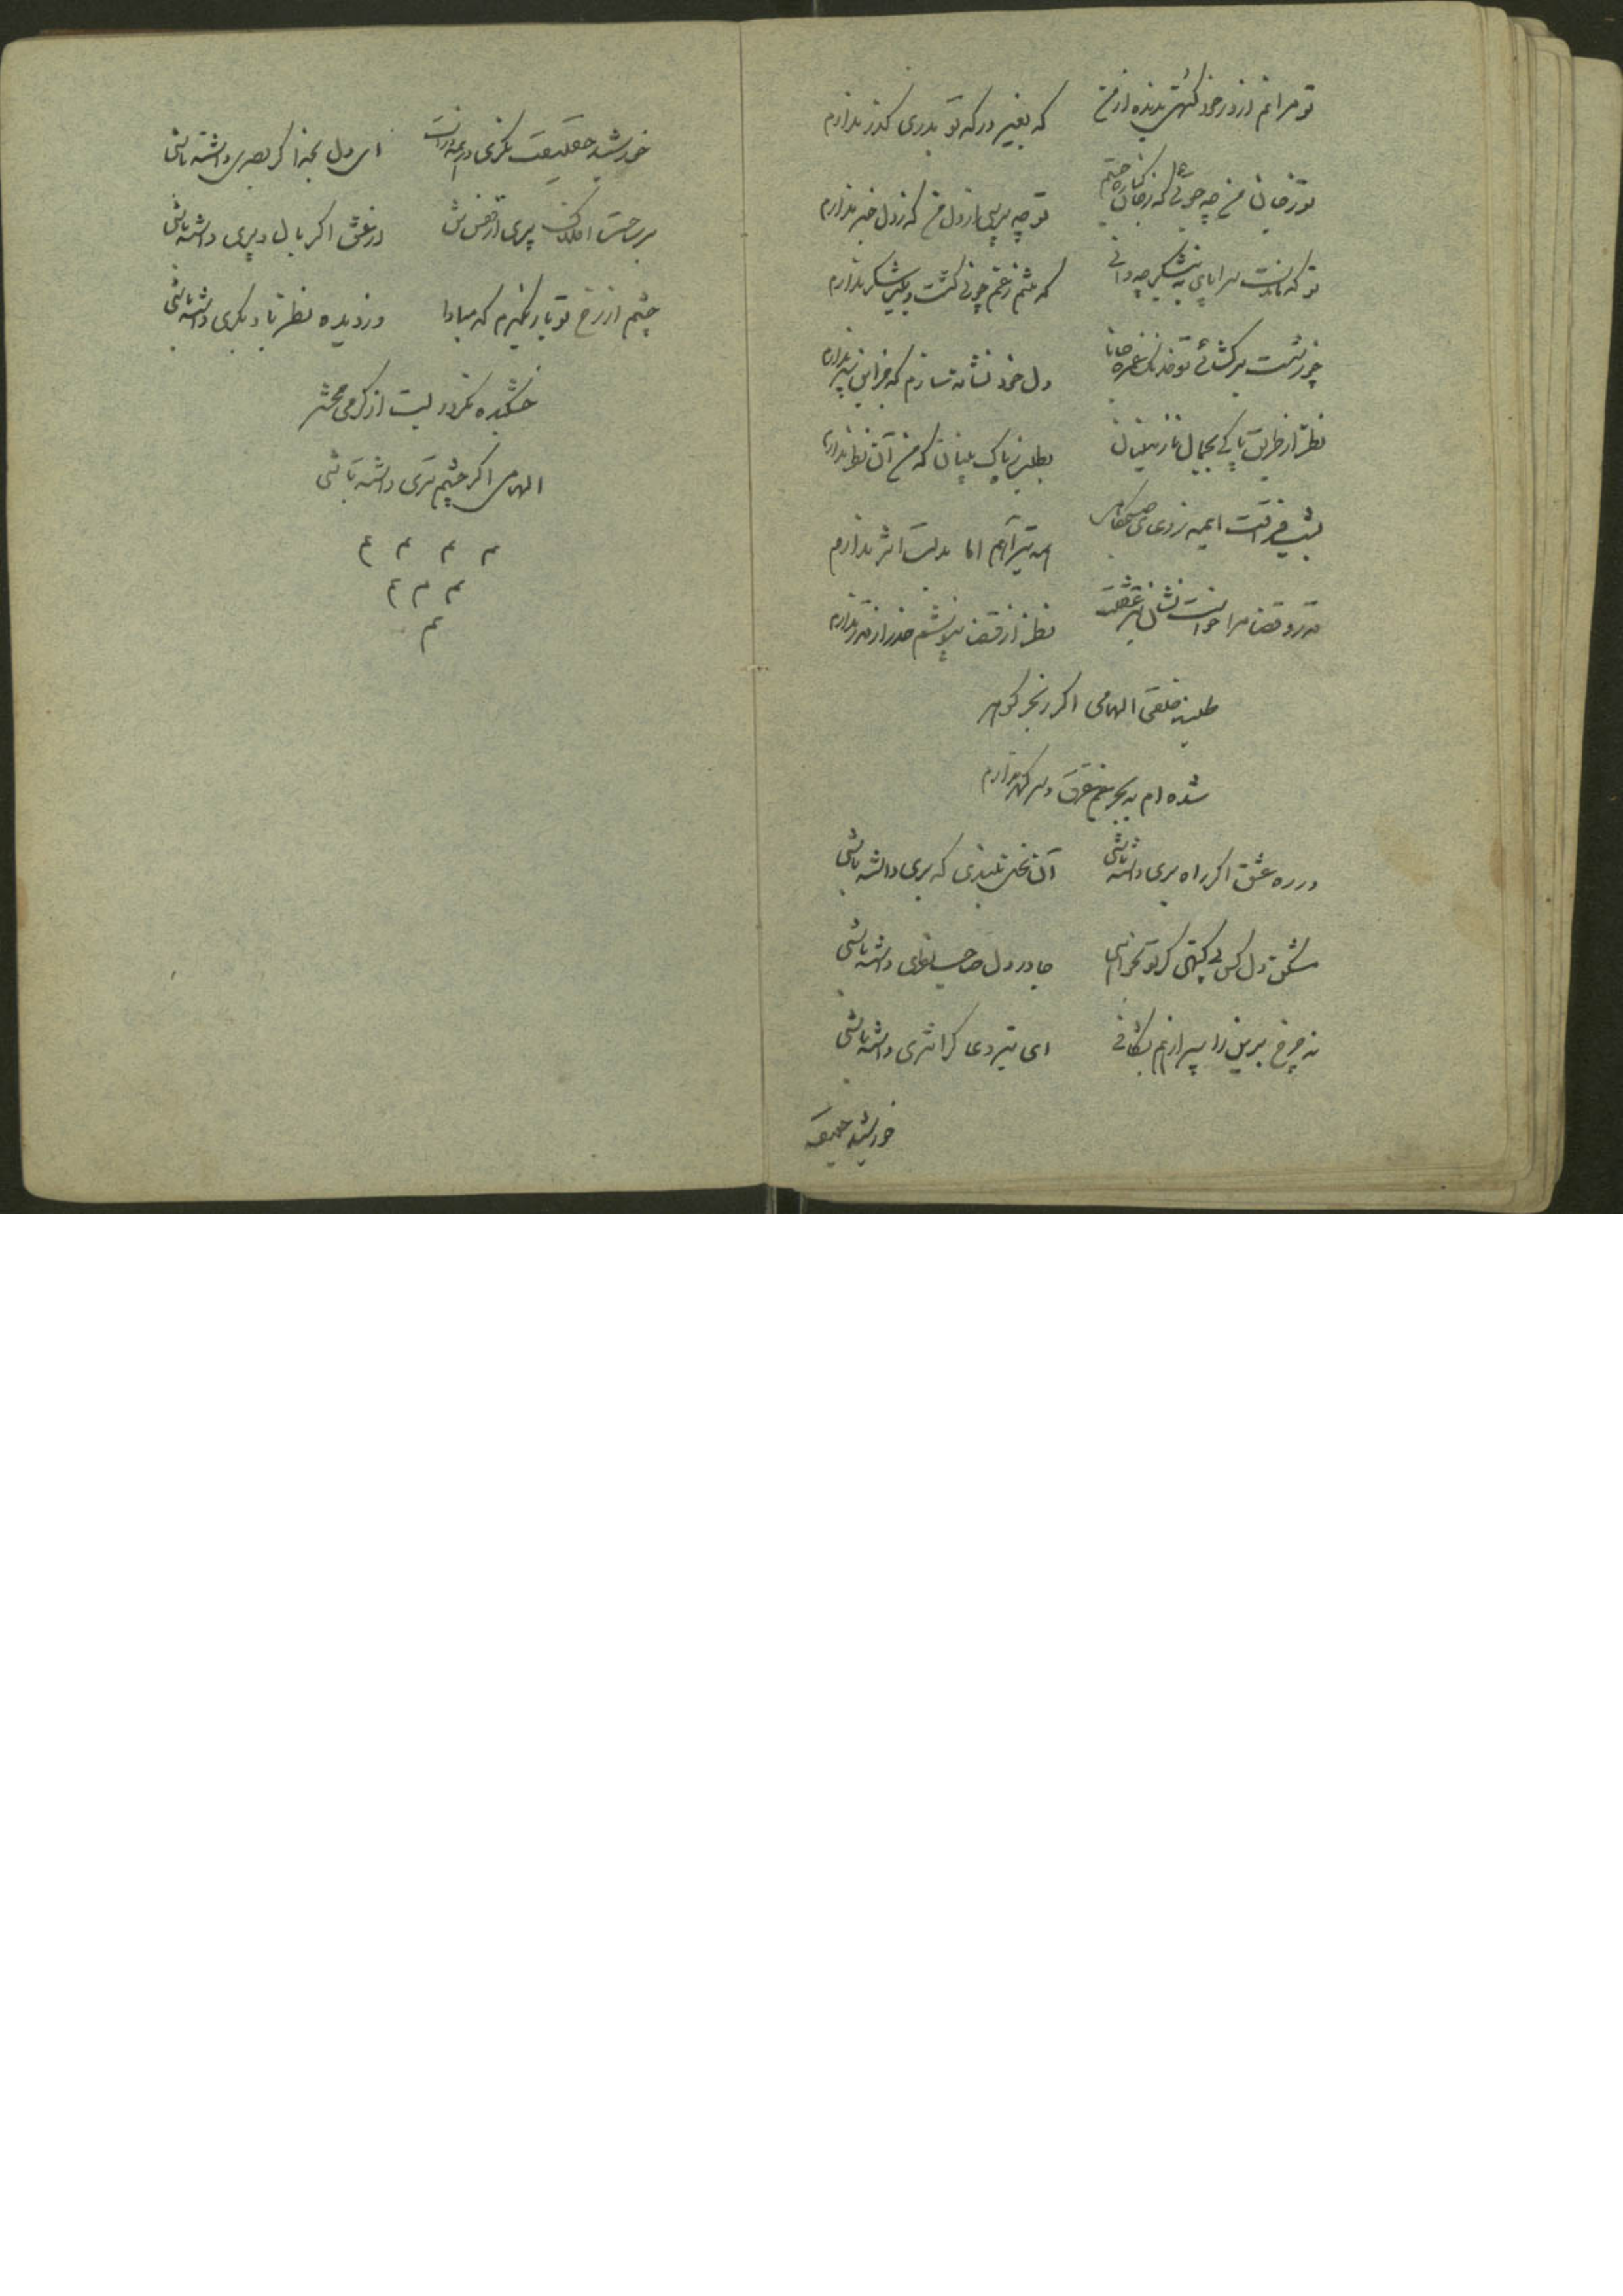 تو مرانم از در خود گنهی ندیده از من
که بغیر درکه تو بدری کذر ندارم
تو ز جان من چه جوئی که ز جان کناره جستم
تو چه پرسی از دل من که ز دل خبر ندارم
تو که سراپای به نیشکر چه دانی
که تنم ز غم چو نی کشت و شکر ندارم
چو ز شست برکشائی تو خدنک غمزه جانا
دل خود نشانه سازم که جز این سپر ندارم
نظر از طریق پاکی بجمال نازنینان
بطلب ز پاک بینان که من آن نظر ندارم
بشب فراقت ایمه ز دعای صبحگاهی
همه تیر آهم اما بدلت اثر ندارم
قدر و قضا مرا خواست نشان تیر عشقت
نظر از قضا نپوشم حذر از قدر ندارم
طلبند خلقی الهامی اکر ز بحر کوهر
شده ام به بحر غم غرق و سر کهر ندارم
در ره عشق اکر راه بری داشته باشی
آن نخل بلندی که بری داشته باشی
مشکن دل کس بی کنهی کر تو بخواهی
جا در دل صاحب نظری داشته باشی
نه چرخ برین را سپر از هم بشکافی
ای تیر دعا کر اثری داشته باشی
خورشید حقیقت
خورشید حقیقت نکری در همه ذرات
ای دل بخدا کر بصری داشته باشی
بر ساحت افلاک پری از قفس تن
در عشق اکر بال و پری داشته باشی
چشم از رخ تو باز نکیرم که مبادا
دزدیده نظر با دکری داشته باشی
خشکیده نکردد لبت از کرمی محشر
الهامی اکر چشم تری داشته باشی
م م م م
م م م
م